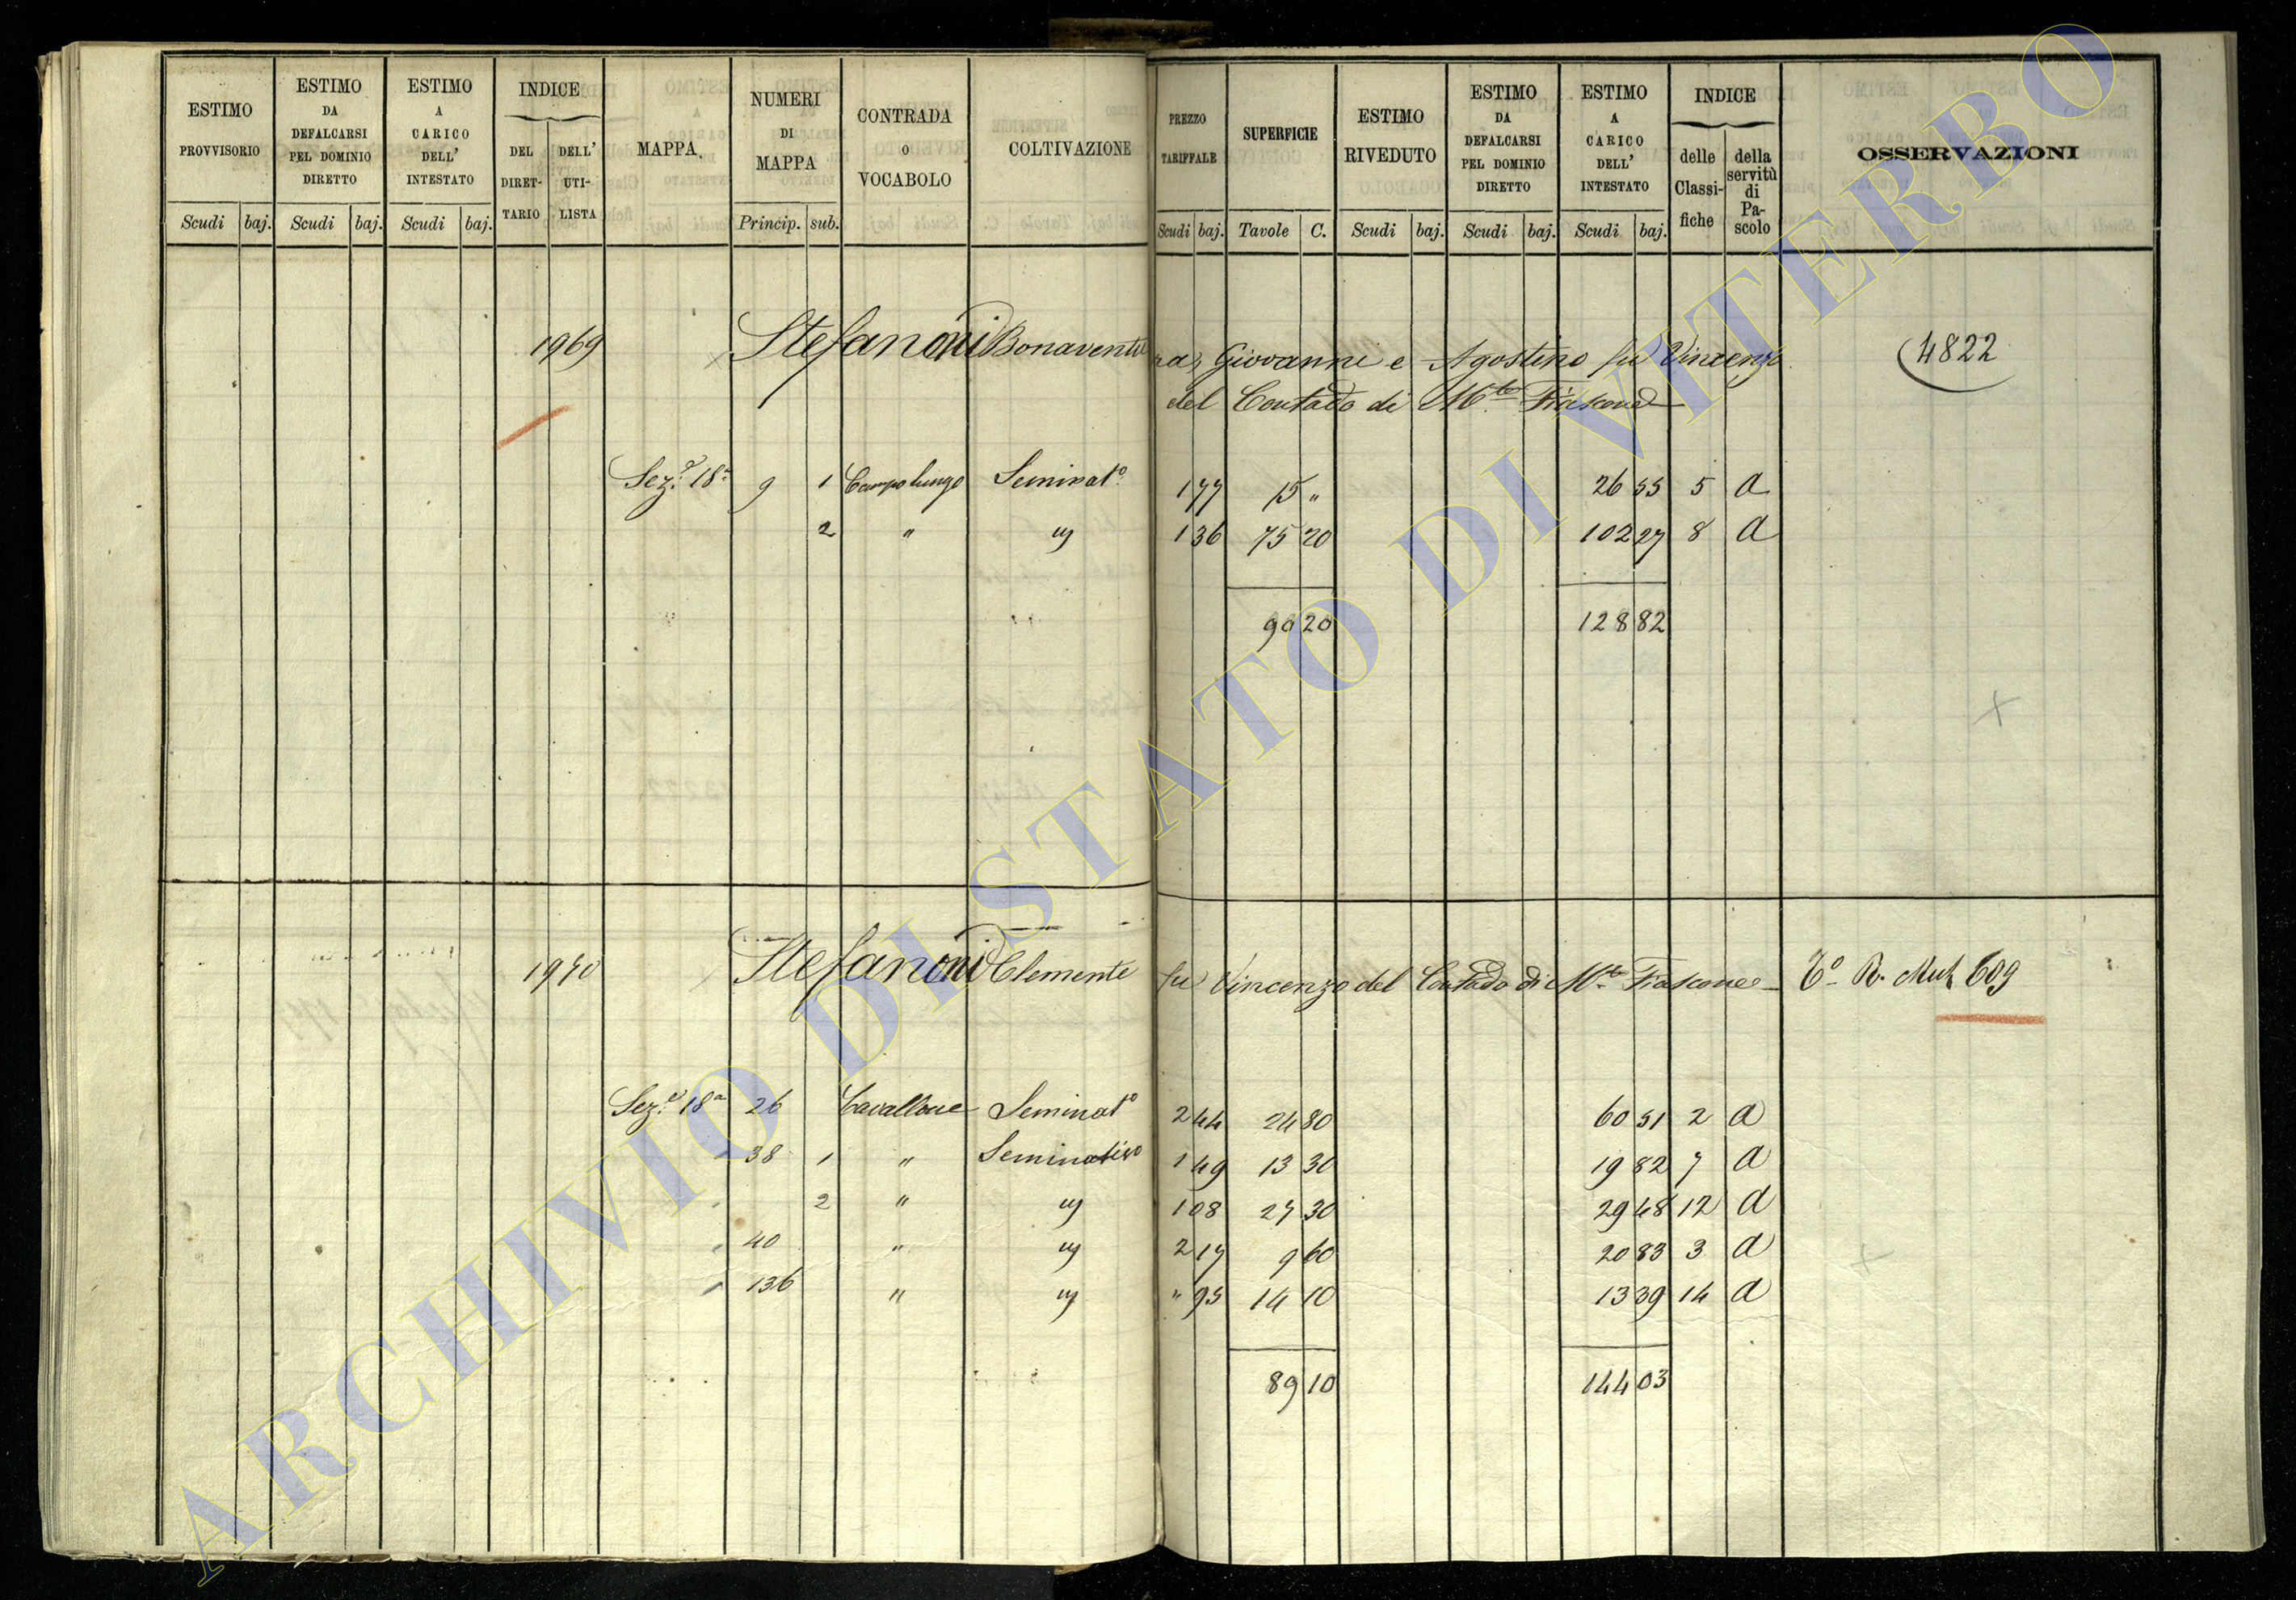 ESTIMO PROVVISORIO
Scudi baj.
ESTIMO DA DEFALCARSI PEL DOMINIO DIRETTO
Scudi baj.
ESTIMO A CARICO DELL' INTESTATO
Scudi baj.
INDICE
DEL DIRET-TARIO
DELL' UTI-LISTA
MAPPA.
NUMERI DI MAPPA
Princip. sub.
CONTRADA O VOCABOLO
COLTIVAZIONE
PREZZO TARIFFALE
Scudi baj.
SUPERFICIE
Tavole C.
ESTIMO RIVEDUTO
Scudi baj.
ESTIMO DA DEFALCARSI PEL DOMINIO DIRETTO
Scudi baj.
ESTIMO A CARICO DELL' INTESTATO
Scudi baj.
INDICE
delle Classi-fiche
della servitù di Pa-scolo
OSSERVAZIONI
1969 Stefanoni Bonaventura, Giovanni e Agostino fu Vincenzo 4822
del Contado di M.te Fiascone
Sez.e 18a 9 1 Campolungo Seminat.o 1 77 15 " 26 55 5 a
2 " " 1 36 75 20 102 27 8 a
90 20 128 82
1970 Stefanoni Clemente fu Vincenzo del Contado di M.te Fiascone To R. Mut 609
Sez.e 18a 26 Cavallone Seminat.o 2 44 24 80 60 51 2 a
" 38 1 " Seminativo 1 49 13 30 19 82 7 a
" 2 " " 1 08 27 30 29 48 12 a
" 40 " " 2 17 9 60 20 83 3 a
" 136 " " " 95 14 10 13 39 14 a
89 10 144 03
ARCHIVIO DI STATO DI VITERBO